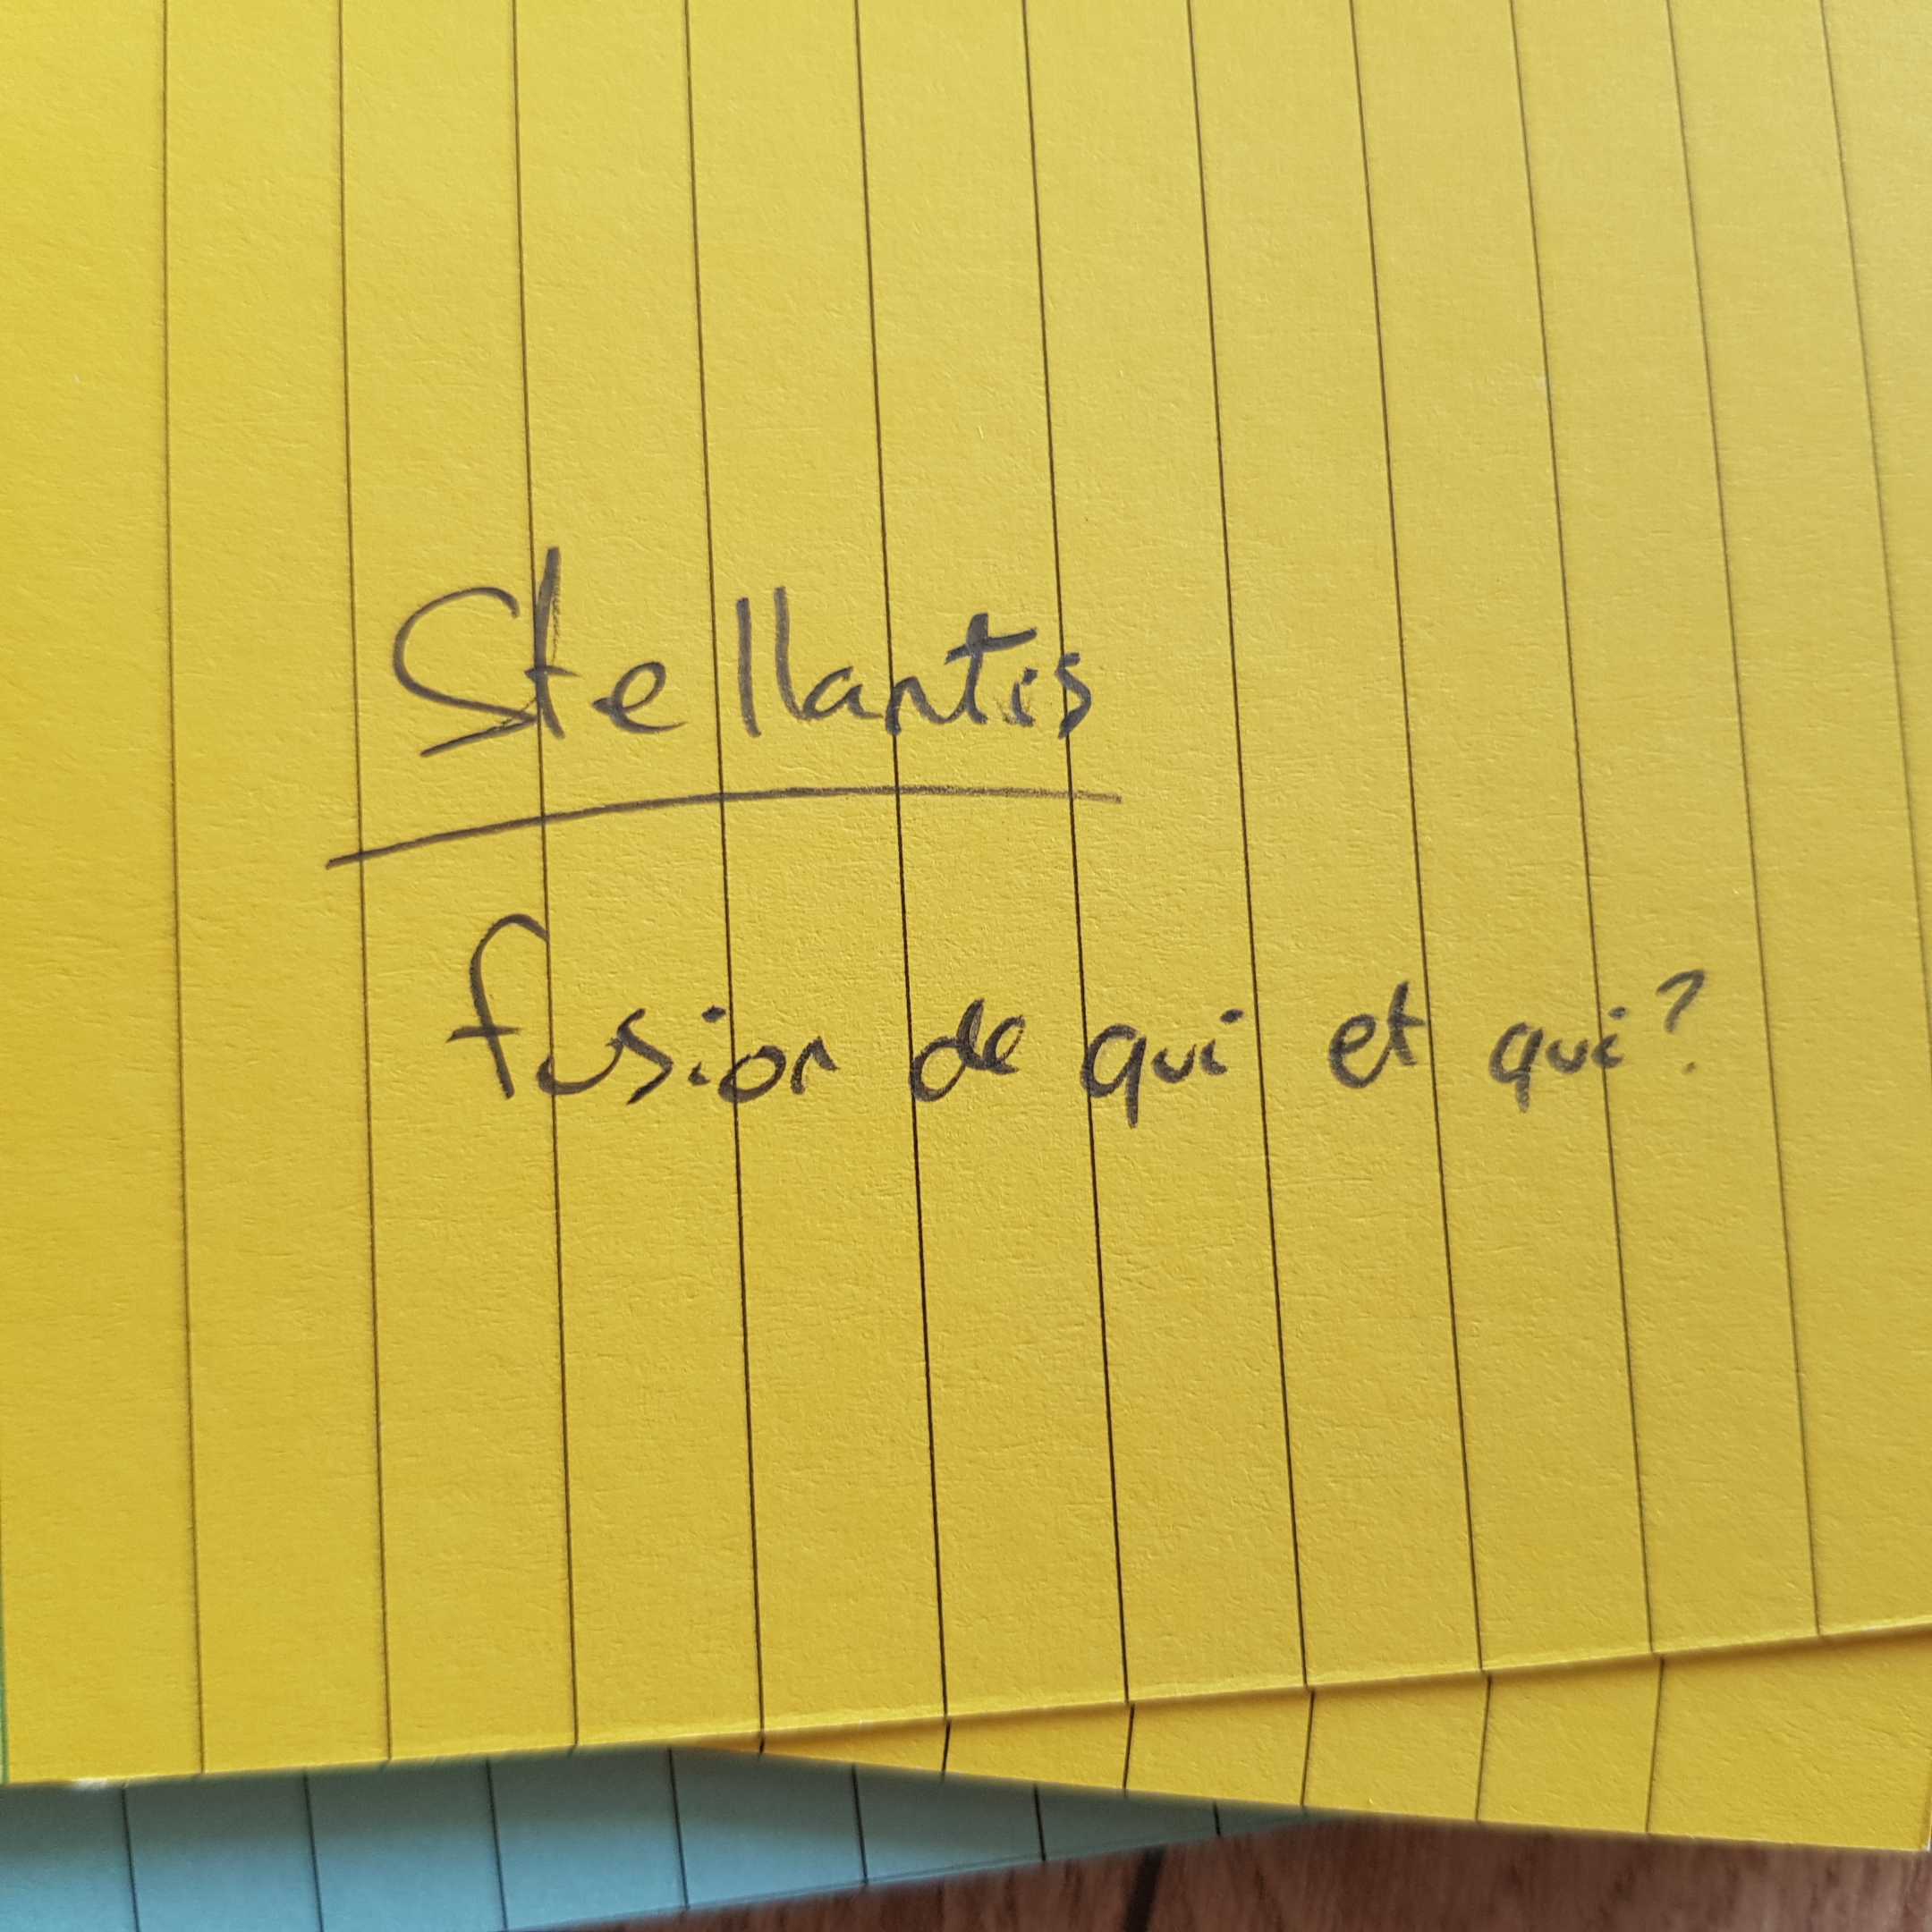 Stellantis
fusion de qui et qui?